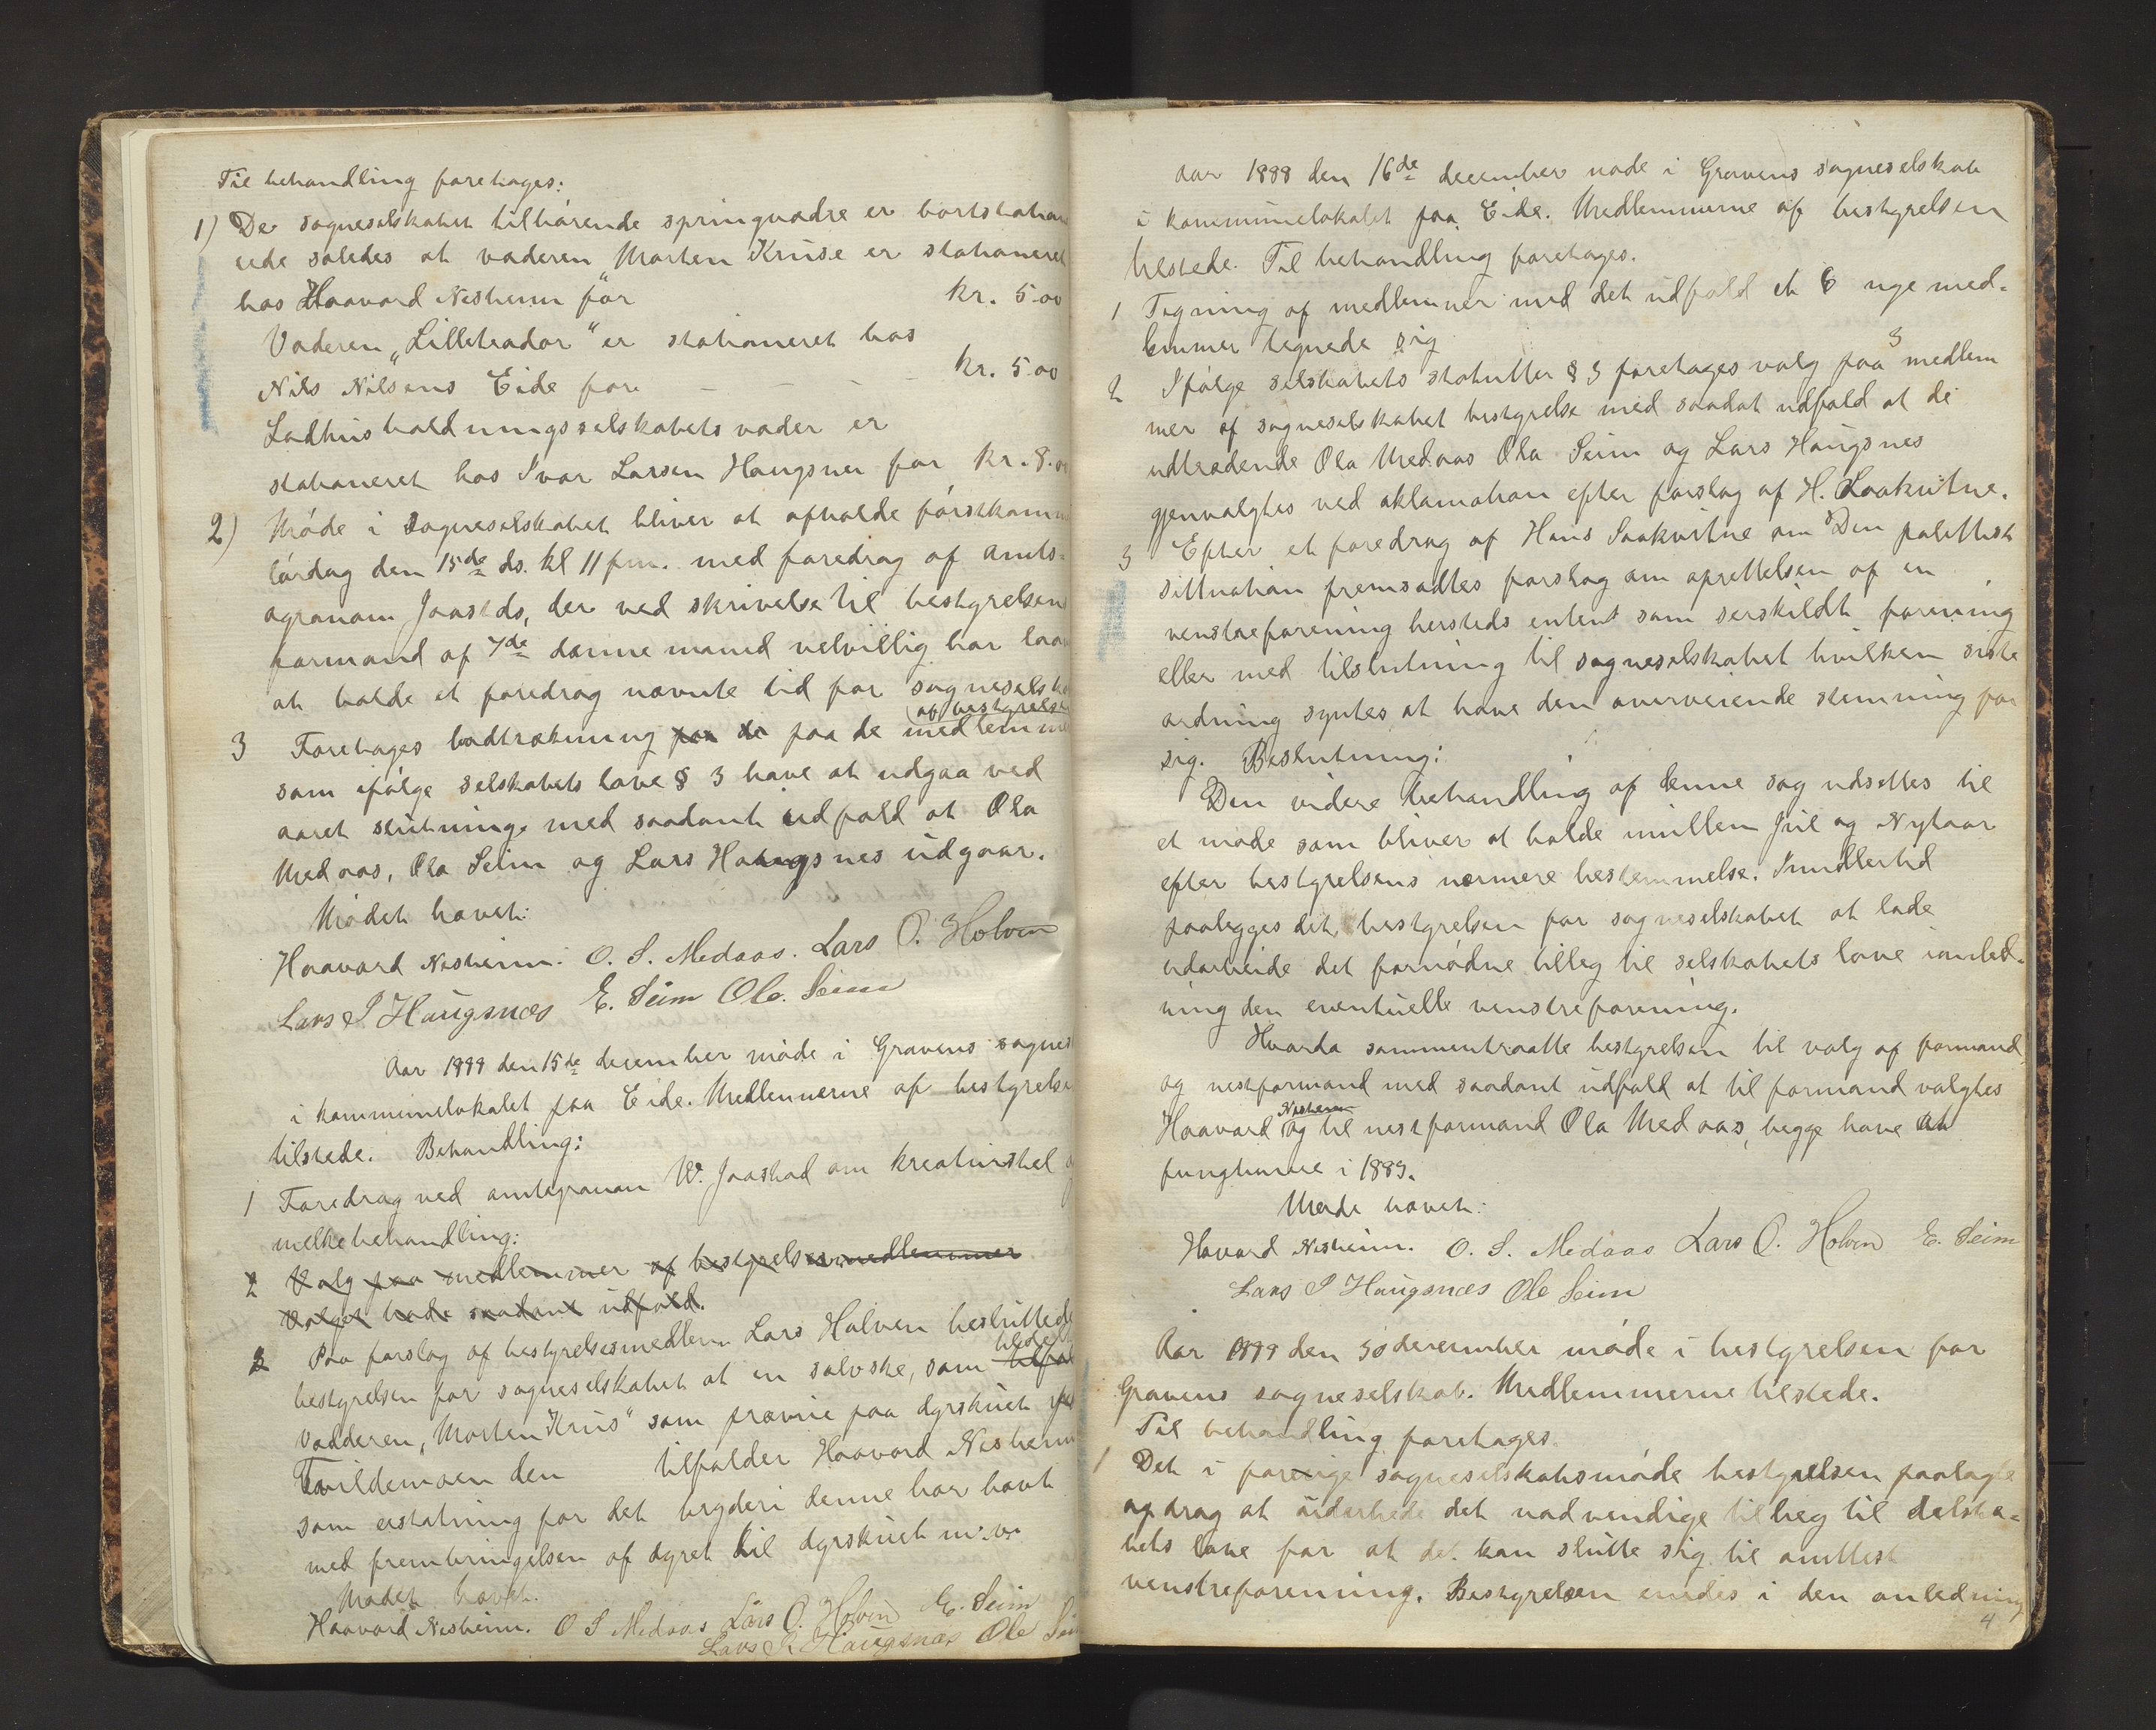 Til behandling foretages:
1) De sogneselskabet tilhørende springvædre er bortstation
erede saledes at væderen Morten Kruse er stationeret
hos Haavard Nesheim för kr. 5.00
Væderen „Lilletrador" er stationeret hos
Nils Nilsens Eide fore - - - - kr. 5.00
Ladhusholdningsselskabets væder er
stationeret hos Ivar Larsen Haugsnes for kr. 8.00
2) Møde i sogneselskabet bliver at afholde førstkomm
lørdag den 15de ds. kl 11 fm. med foredrag af amts-
agronom Jaastds, der ved skrivelse til bestyrelsens
formand af 7de denne maaned velvillig har lovet
at holde et foredrag nævnte tid for sogneselska
(af bestyrelsen
3 Foretages lodtrækning paa de paa de medlemmer
som ifølge selskabets love § 3 have at udgaa ved
aaret slutninge med saadant udfald at Ola
Medaas, Ola Seim og Lars Haugsnes udgaar.
Mødet hævet:
Haavard Nesheim. O. S. Medaas. Lars O. Holven
Lars P Haugsnæs E. Seim Ole. Seim
Aar 1888 den 15de december møde i Gravens sognes
i kommunelokalet paa Eide. Medlemmerne af bestyrelse
tilstede. Behandling:
1 Foredrag ved amtagronom W. Jaastad om kreaturstel og
melkebehandling:
2 Valg paa medlemmer af bestyrelsesmedlemmer
Valget hade saadant udfald.
2 Paa forslag af bestyrelsesmedlem Lars Holven besluttede
bestyrelsen for sogneselskabet at en sølvske, som
væderen „Morten Krus" som præmie paa dyrskuet paa
Tvildemoen den tilfalder Haavard Nesheim
som erstatning for det bryderi denne har havt
med frembringelsen af dyret til dyrskuet m.v.
Mødet hævet.
Haavard Nesheim. O S Medaas Lars O. Holven E. Seim
Lars P. Haugsnæs Ole Seim
Aar 1888 den 16de december møde i Gravens sogneselskab
i kommunelokalet paa Eide. Medlemmerne af bestyrelsen
tilstede. Til behandling foretages.
1 Tegning af medlemmer med det udfald at 6 nye med-
lemmer tegnede sig
2 Ifølge selskabets statutter § 3 foretages valg paa 3 medlem
mer af sogneselskabet bestyrelse med saadat udfald at de
udtrædende Ola Medaas Ola Seim og Lars Haugsnes
gjenvalgtes ved aklamation efter forslag af H. Saakvitne.
3 Efter et foredrag af Hans Saakvitne om Den polittisk
sittuation fremsattes forslag om oprettelsen af en
venstreforening hersteds entent som serskildt forening
eller med tilslutning til sogneselskabet hvilken siste
ordning syntes at have den overveiende stemning for
sig. Beslutning:
Den videre behandling af denne sag udsettes til
et møde som bliver at holde mellem Jul og Nytaar
efter bestyrelsens nærmere bestemmelse. Imidlertid
paalegges det bestyrelsen for sogneselskabet at lade
udarbeide det fornødne tilleg til selskabets love ianled-
ning den eventuelle venstreforening.
Hvorda sammentraatte bestyrelsen til valg af formand
og nestformand med saadant udfald at til formand valgtes
Haavard Nesheim og til nestformand Ola Medaas, begge have at
fungturere i 1889.
Møde hævet:
Havard Nesheim. O. S. Medaas Lars O. Holven E. Seim
Lars P Haugsnæs Ole Seim
Aar 1888 den 30 december møde i bestyrelsen for
Gravens sogneselskab. Medlemmerne tilstede.
Til behandling foretages.
1 Det i forrige sogneselskabsmøde bestyrelsen paalagte
opdrag at udarbede det nødvendige tilleg til delska-
bets love for at det kan slutte sig til amttest
venstreforening. Bestyrelsen enedes i den anledning
4